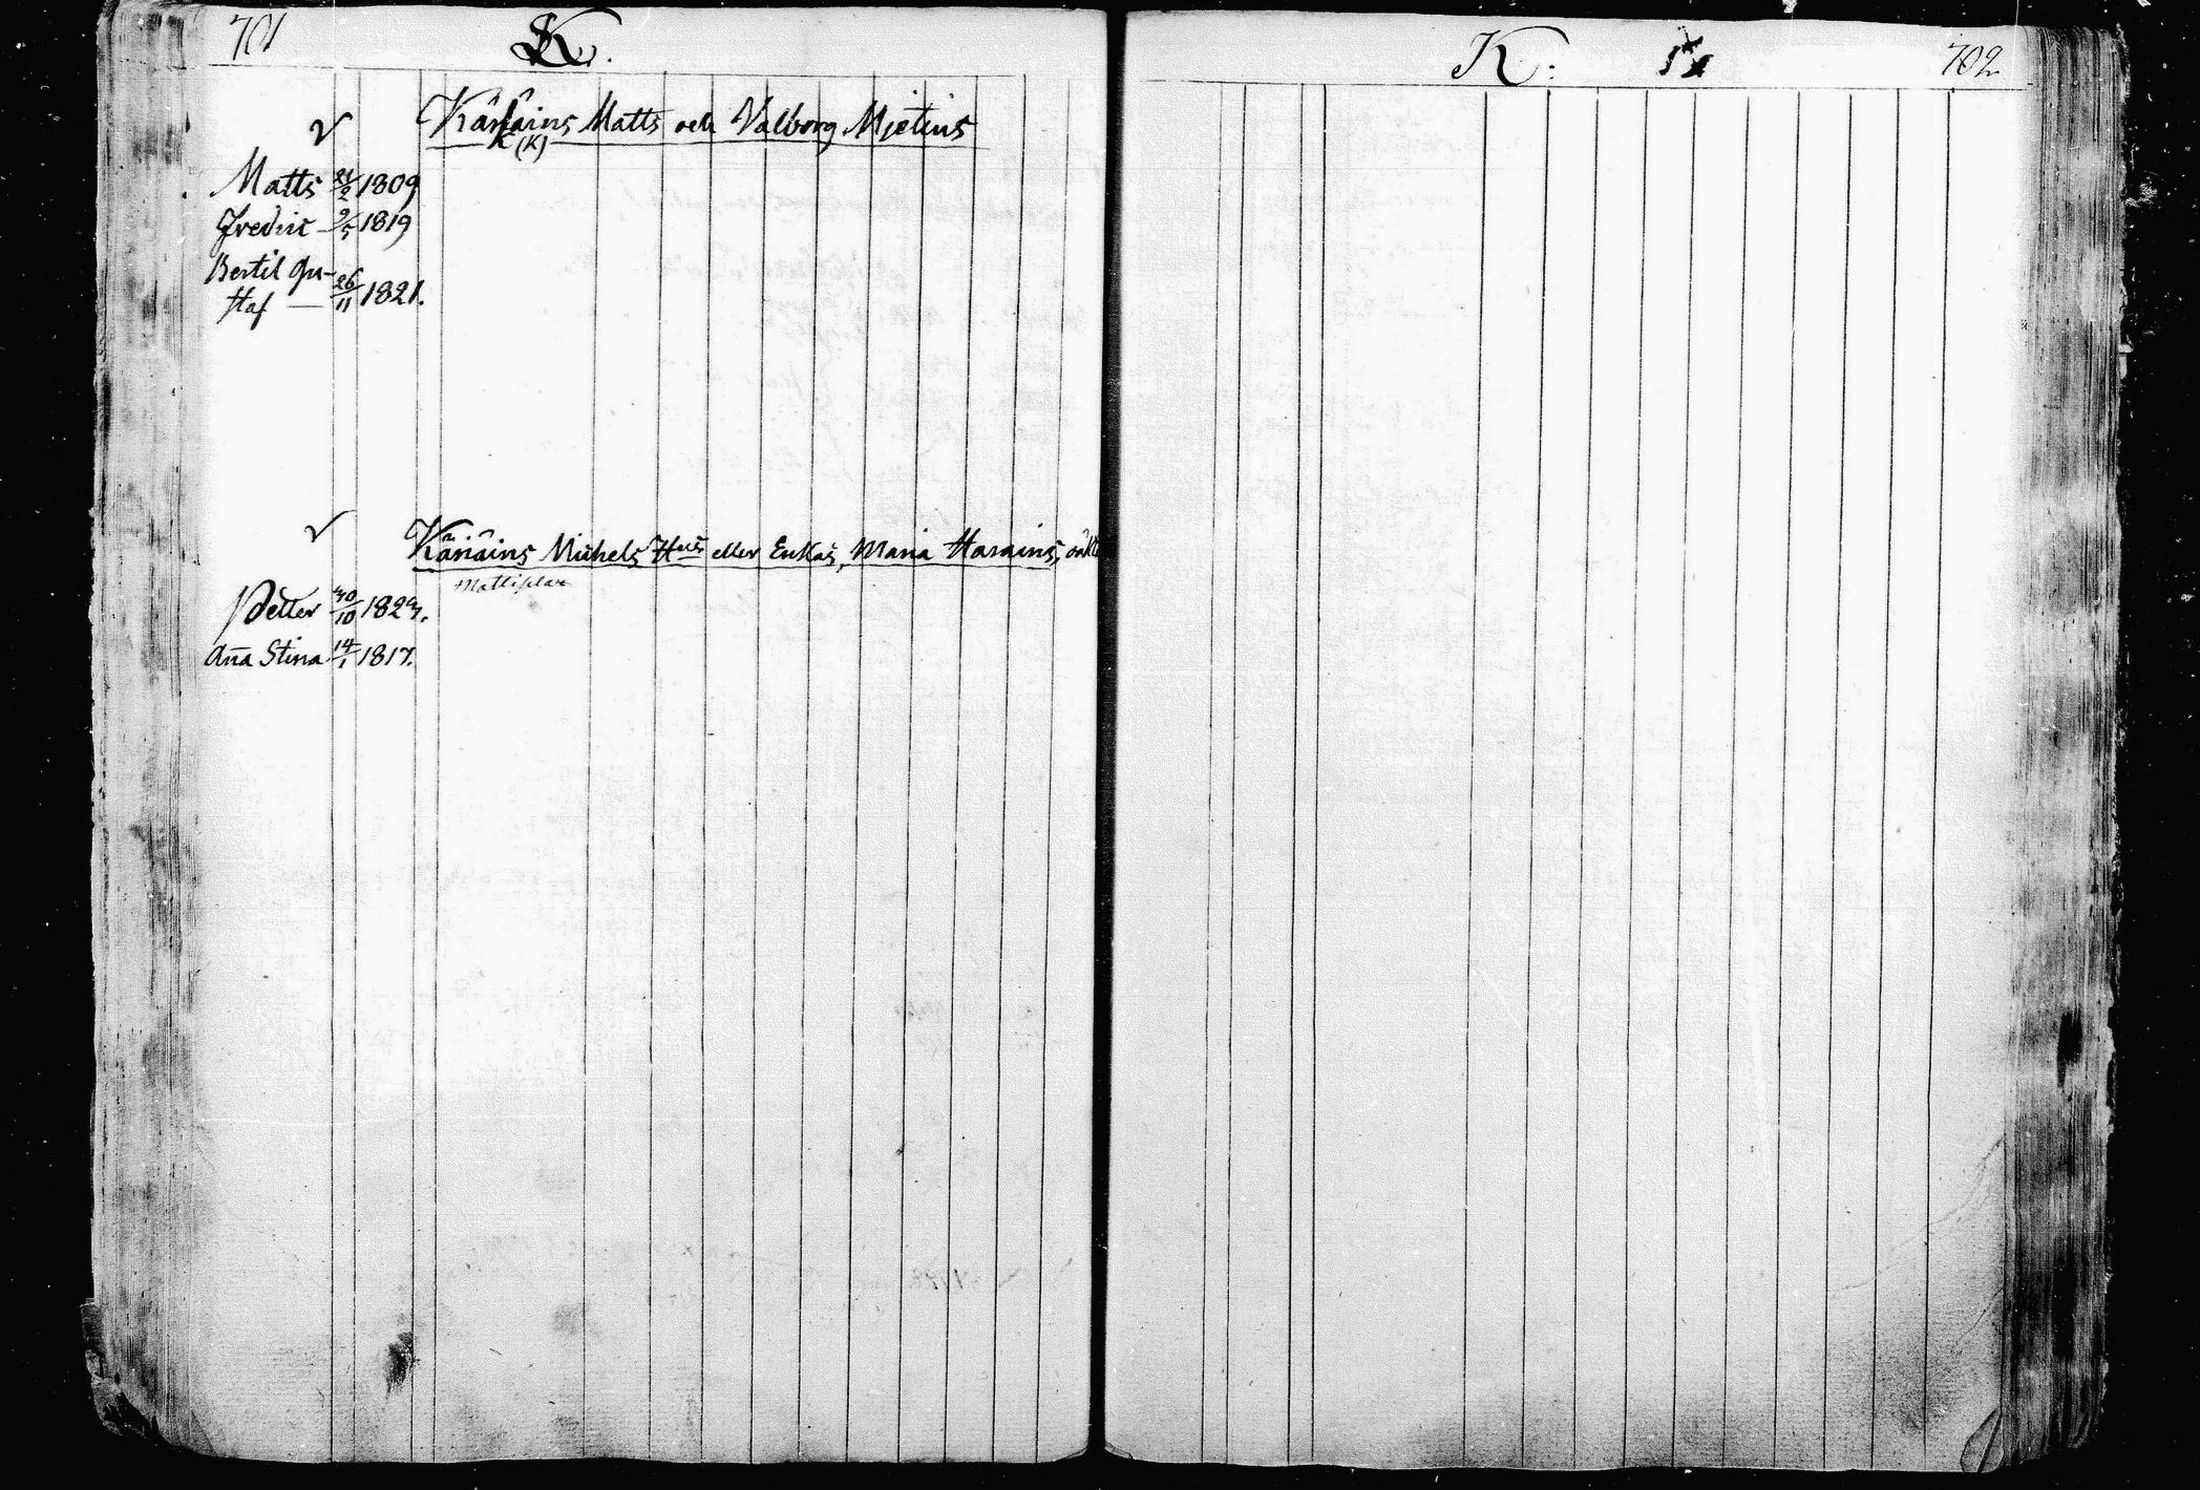 701
K.
Matts och Valborg Mietins
(K)
Matts 21/2 1809
Fredric - 9/5 1819
Bertil Gu-
staf — 26/11 1821.
Michels H eller Enkas, Maria Harains,
Mattiplan
Petter 30/10 182
Ana Stina 14/1 1817.
K:
702